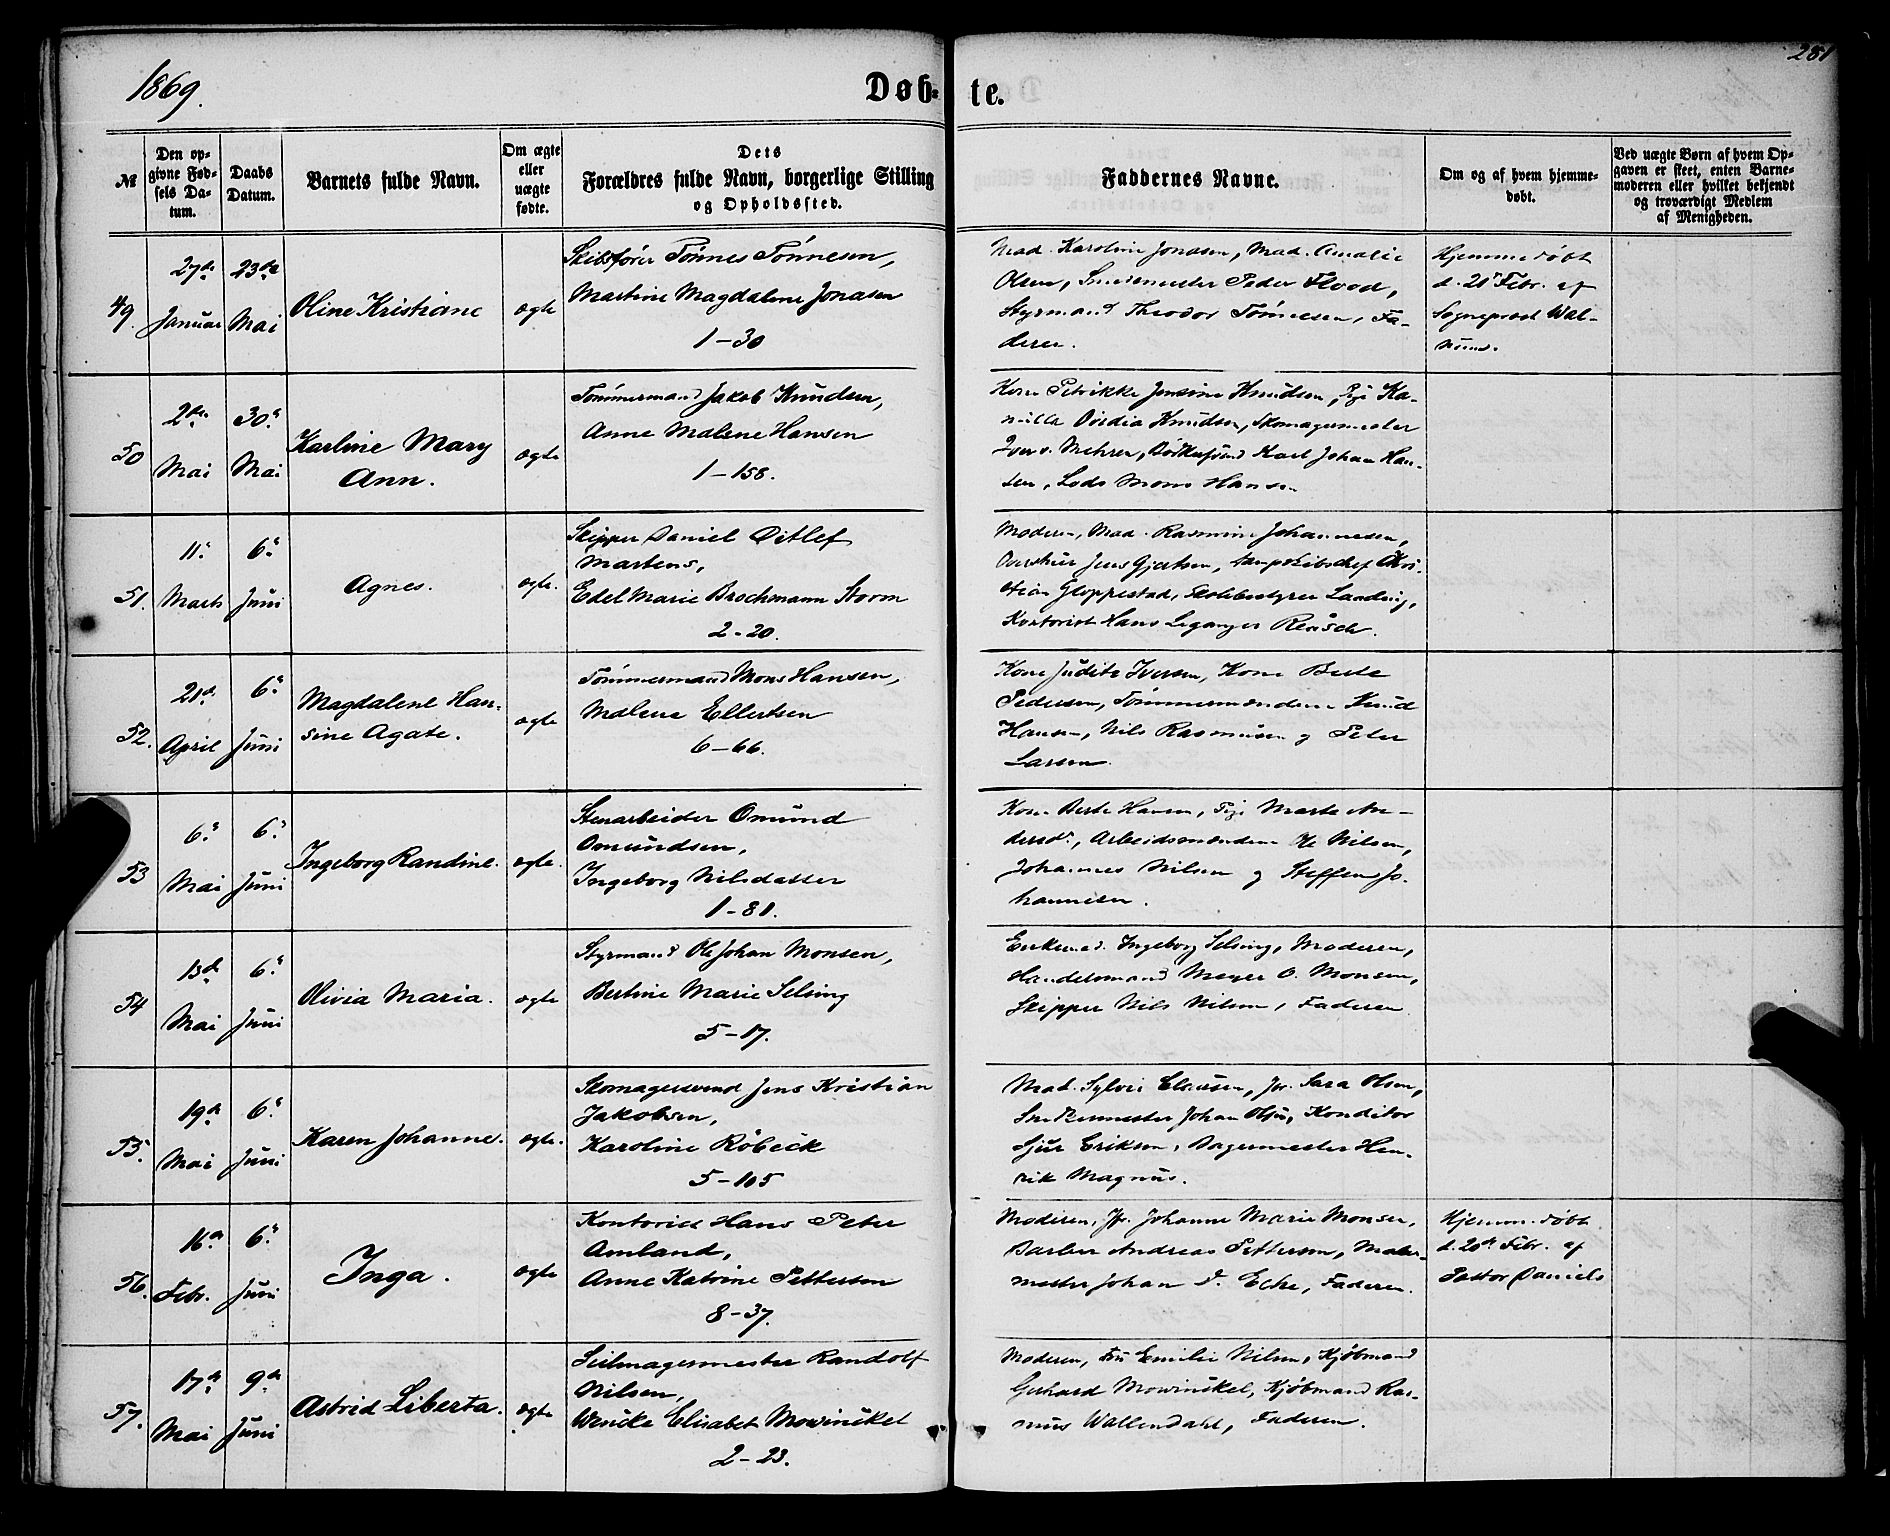 281
1869.
Døb-
te.
№
Den op-
givne Fød-
sels Da-
tum.
Daabs
Datum.
Barnets fulde Navn.
Om ægte
eller
uægte
fødte.
Dets
Forældres fulde Navn, borgerlige Stilling
og Opholdssted.
Faddernes Navne.
Om og af hvem hjemme-
døbt.
Ved uægte Børn af hvem Op-
gaven er skeet, enten Barne-
moderen eller hvilket bekjendt
og troværdigt Medlem
af Menigheden.
49.
27de
Januar
23de
Mai
Oline Kristiane
ægte
Skibsfører Tönnes Tönnesen,
Martine Magdalene Jonasen
1-30
Mad. Karoline Jonasen, Mad. Amalie
Olsen, Smedemester Peder Flood,
Styrmand Theodor Tönnesen, Fa-
deren.
Hjemmedøbt
d. 21de Febr. af
Sogneprest Wal-
num.
50
2den
Mai
30te
Mai
Karline Mary
Ann.
ægte
Tömmermand Jakob Knudsen,
Anne Malene Hansen
1-158.
Kone Petrikke Jensine Knudsen, Pige Ka-
milla Knudsen, Skomagermester
Mehrer, Karl Johan Han-
sen, Lods Mons Hansen
51.
11te
Marts
6te
Juni
Agnes.
ægte.
Skipper Daniel Ditlef
Martens,
Edel Marie Brochmann Storm
2-20.
Moderen, Mad. Rasmine Johannesen,
Jens Gjertsen, Kri-
stian Gloppestad, Skolebestyrer
Kontorist Hans Leganger Reusch.
52.
21de
April
6te
Juni
Magdalene Han-
sine Agate.
ægte
Tömmermand Mons Hansen,
Malene Ellertsen
6-66.
Kone Judite Iversen, Kone Berte
Pedersen, Tömmermændene Knud
Hansen, Nils Rasmusen og Peter
Larsen.
53
6te
Mai
6te
Juni
Ingeborg Randine.
ægte.
Stenarbeider Omund
Omundsen,
Ingeborg Nilsdatter
1-81.
Kone Berte Hansen, Pige Marte An-
dersdr, Arbeidsmændene Nilsen,
Johannes Nilsen og Steffen Jo-
hannesen.
54
13de
Mai
6te
Juni
Olivia Maria.
ægte
Styrmand Ole Johan Monsen,
Bertine Marie Selsing
5-17.
Enkemad. Ingeborg Selsing, Moderen,
Handelsmand Meyer O. Monsen,
Skipper Nils Nilsen, Faderen
55.
19de
Mai
6te
Juni
Karen Johanne.
ægte.
Skomagersvend Jens Kristian
Jakobsen,
Karoline Röbeck
5-105
Mad. Sylvie Clausen, Jfr. Sara Olsen,
Snedkermester Johan Olsen, Konditor
Sjur Eriksen, Bagermester Hen-
rik Magnus.
56.
16de
Febr.
6te
Juni
Inga.
ægte
Kontorist Hans Peter
Amland,
Anne Katrine Pettersen
8-37.
Moderen, Jfr. Johanne Marie Monsen,
Barber Andreas Pettersen, Maler-
mester Johan Ecke, Faderen.
Hjemmedøbt
d. 20de Febr. af
Pastor Daniels
57.
17de
Mai
9de
Juni
Astrid Liberta.
ægte
Seilmagermester Randolf
Nilsen,
Wencke Elisabet Mowinckel
2-23.
Moderen, Fru Emilie Nilsen, Kjøbmand
Gerhard Mowinckel, Kjøbmand Ras-
mus Wallendahl, Faderen.